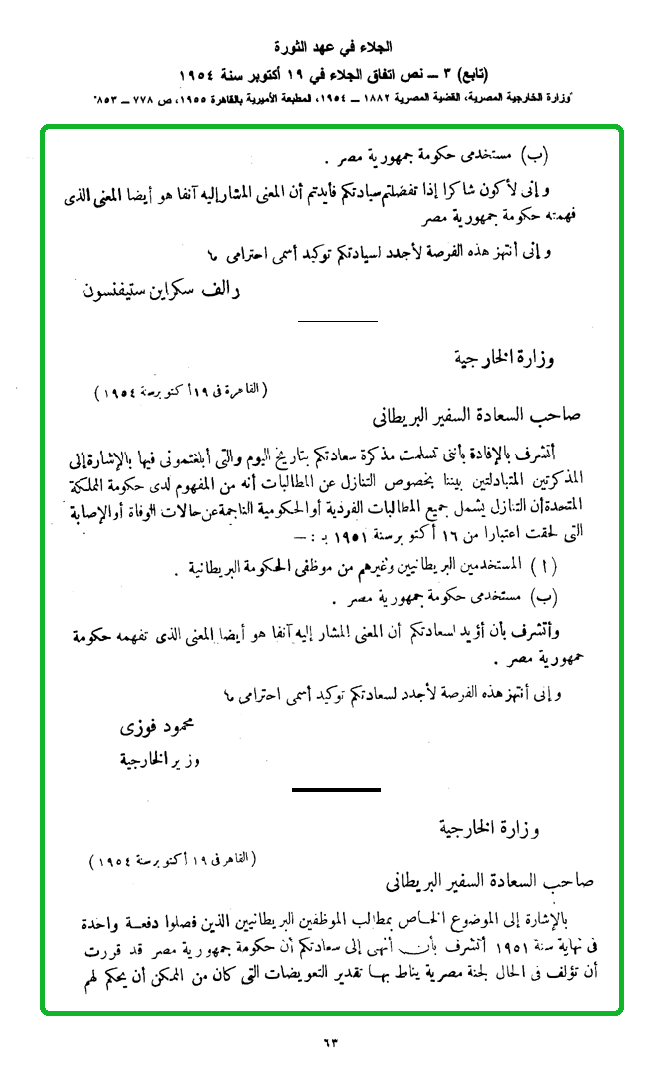 الجلاء في عهد الثورة
(تابع) ٣ ــ نص اتفاق الجلاء في ١٩ أكتوبر سنة ١٩٥٤
"وزارة الخارجية المصرية، القضية المصرية ١٨٨٢ ــ ١٩٥٤، المطبعة الأميرية بالقاهرة ١٩٥٥، ص ٧٧٨ ــ ٨٥٣"
(ب) مستخدمى حكومة جمهورية مصر .
و إنى لأكون شاكرا إذا تفضلتم سيادتكم فأيدتم أن المعنى المشار إليه آنفا هو أيضا المعنى الذى
فهمته حكومة جمهورية مصر
و إنى أنتهز هذه الفرصة لأجدد لسيادتكم توكيد أسمى احترامى ،
رالف سكراين ستيفنسون
وزارة الخارجية
(القاهرة فى ١٩ أكتوبر سنة ١٩٥٤)
صاحب السعادة السفير البريطانى
أتشرف بالإفادة بأننى تسلمت مذكرة سعادتكم بتاريخ اليوم والتى أبلغتمونى فيها بالإشارة إلى
المذكرتين المتبادلتين بيننا بخصوص التنازل عن المطالبات أنه من المفهوم لدى حكومة المملكة
المتحدة أن التنازل يشمل جميع المطالبات الفردية أو الحكومية الناجمة عن حالات الوفاة أو الإصابة
التى لحقت اعتبارا من ١٦ أكتوبر سنة ١٩٥١ بـ : —
(ا) المستخدمين البريطانيين وغيرهم من موظفى الحكومة البريطانية .
(ب) مستخدمى حكومة جمهورية مصر .
وأتشرف بأن أؤيد لسعادتكم أن المعنى المشار إليه آنفا هو أيضا المعنى الذى تفهمه حكومة
جمهورية مصر .
و إنى أنتهز هذه الفرصة لأجدد لسعادتكم توكيد أسمى احترامى ،
محمود فوزى
وزير الخارجية
وزارة الخارجية
(القاهر فى ١٩ أكتوبر سنة ١٩٥٤)
صاحب السعادة السفير البريطانى
بالإشارة إلى الموضوع الخاص بمطالب الموظفين البريطانيين الذين فصلوا دفعة واحدة
فى نهاية سنة ١٩٥١ أتشرف بأن أنهى إلى سعادتكم أن حكومة جمهورية مصر قد قررت
أن تؤلف فى الحال لجنة مصرية يناط بها تقدير التعويضات التى كان من الممكن أن يحكم لهم
٦٣